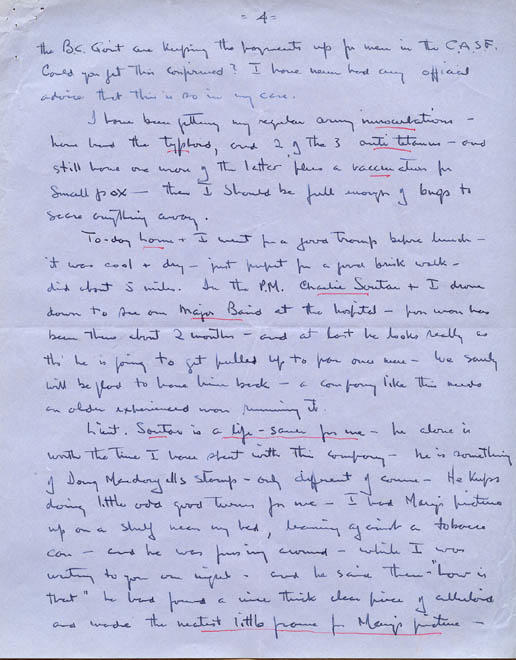 = 4 =
the B.C. Gov't are keeping the payments up for men in the C.A.S.F.
Could you get this confirmed? I have never had any official
advice that this is so in my case.
I have been getting my regular army innoculations -
have had the typhoid, and 2 of the 3 anti tetanus - and
still have one more of the latter, plus a vaccination for
small pox - then I should be full enough of bugs to
scare anything away.
To-day + I went for a good tramp before lunch -
it was cool + dry - just perfect for a good brisk walk -
did about 5 miles. In the P.M. Charlie + I drove
down to see our Major Baird at the hospital - poor man has
been there about 2 months - and at last he looks really as
tho' he is going to get pulled up to par once more - We surely
will be glad to have him back - a company like this needs
an older experienced man running it.
Lieut. is a life-saver for me - he alone is
worth the time I have spent with this company - he is something
of Doug stamp - only different of course - He keeps
doing little odd good turns for me - I had Mary's picture
up on a shelf near my bed, leaning against a tobacco
can - and he was fussing around - while I was
writing to you one night - and he said then - "how is
that" he had found a nice thick clear piece of
and made the neatest little frame for Mary's picture -